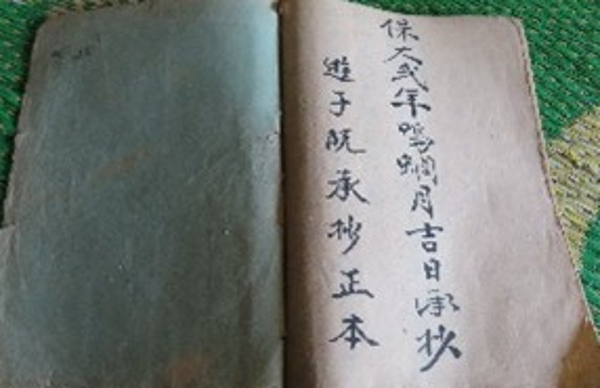 保大弍年鳴蜩月吉日承抄
遊子阮承抄正本